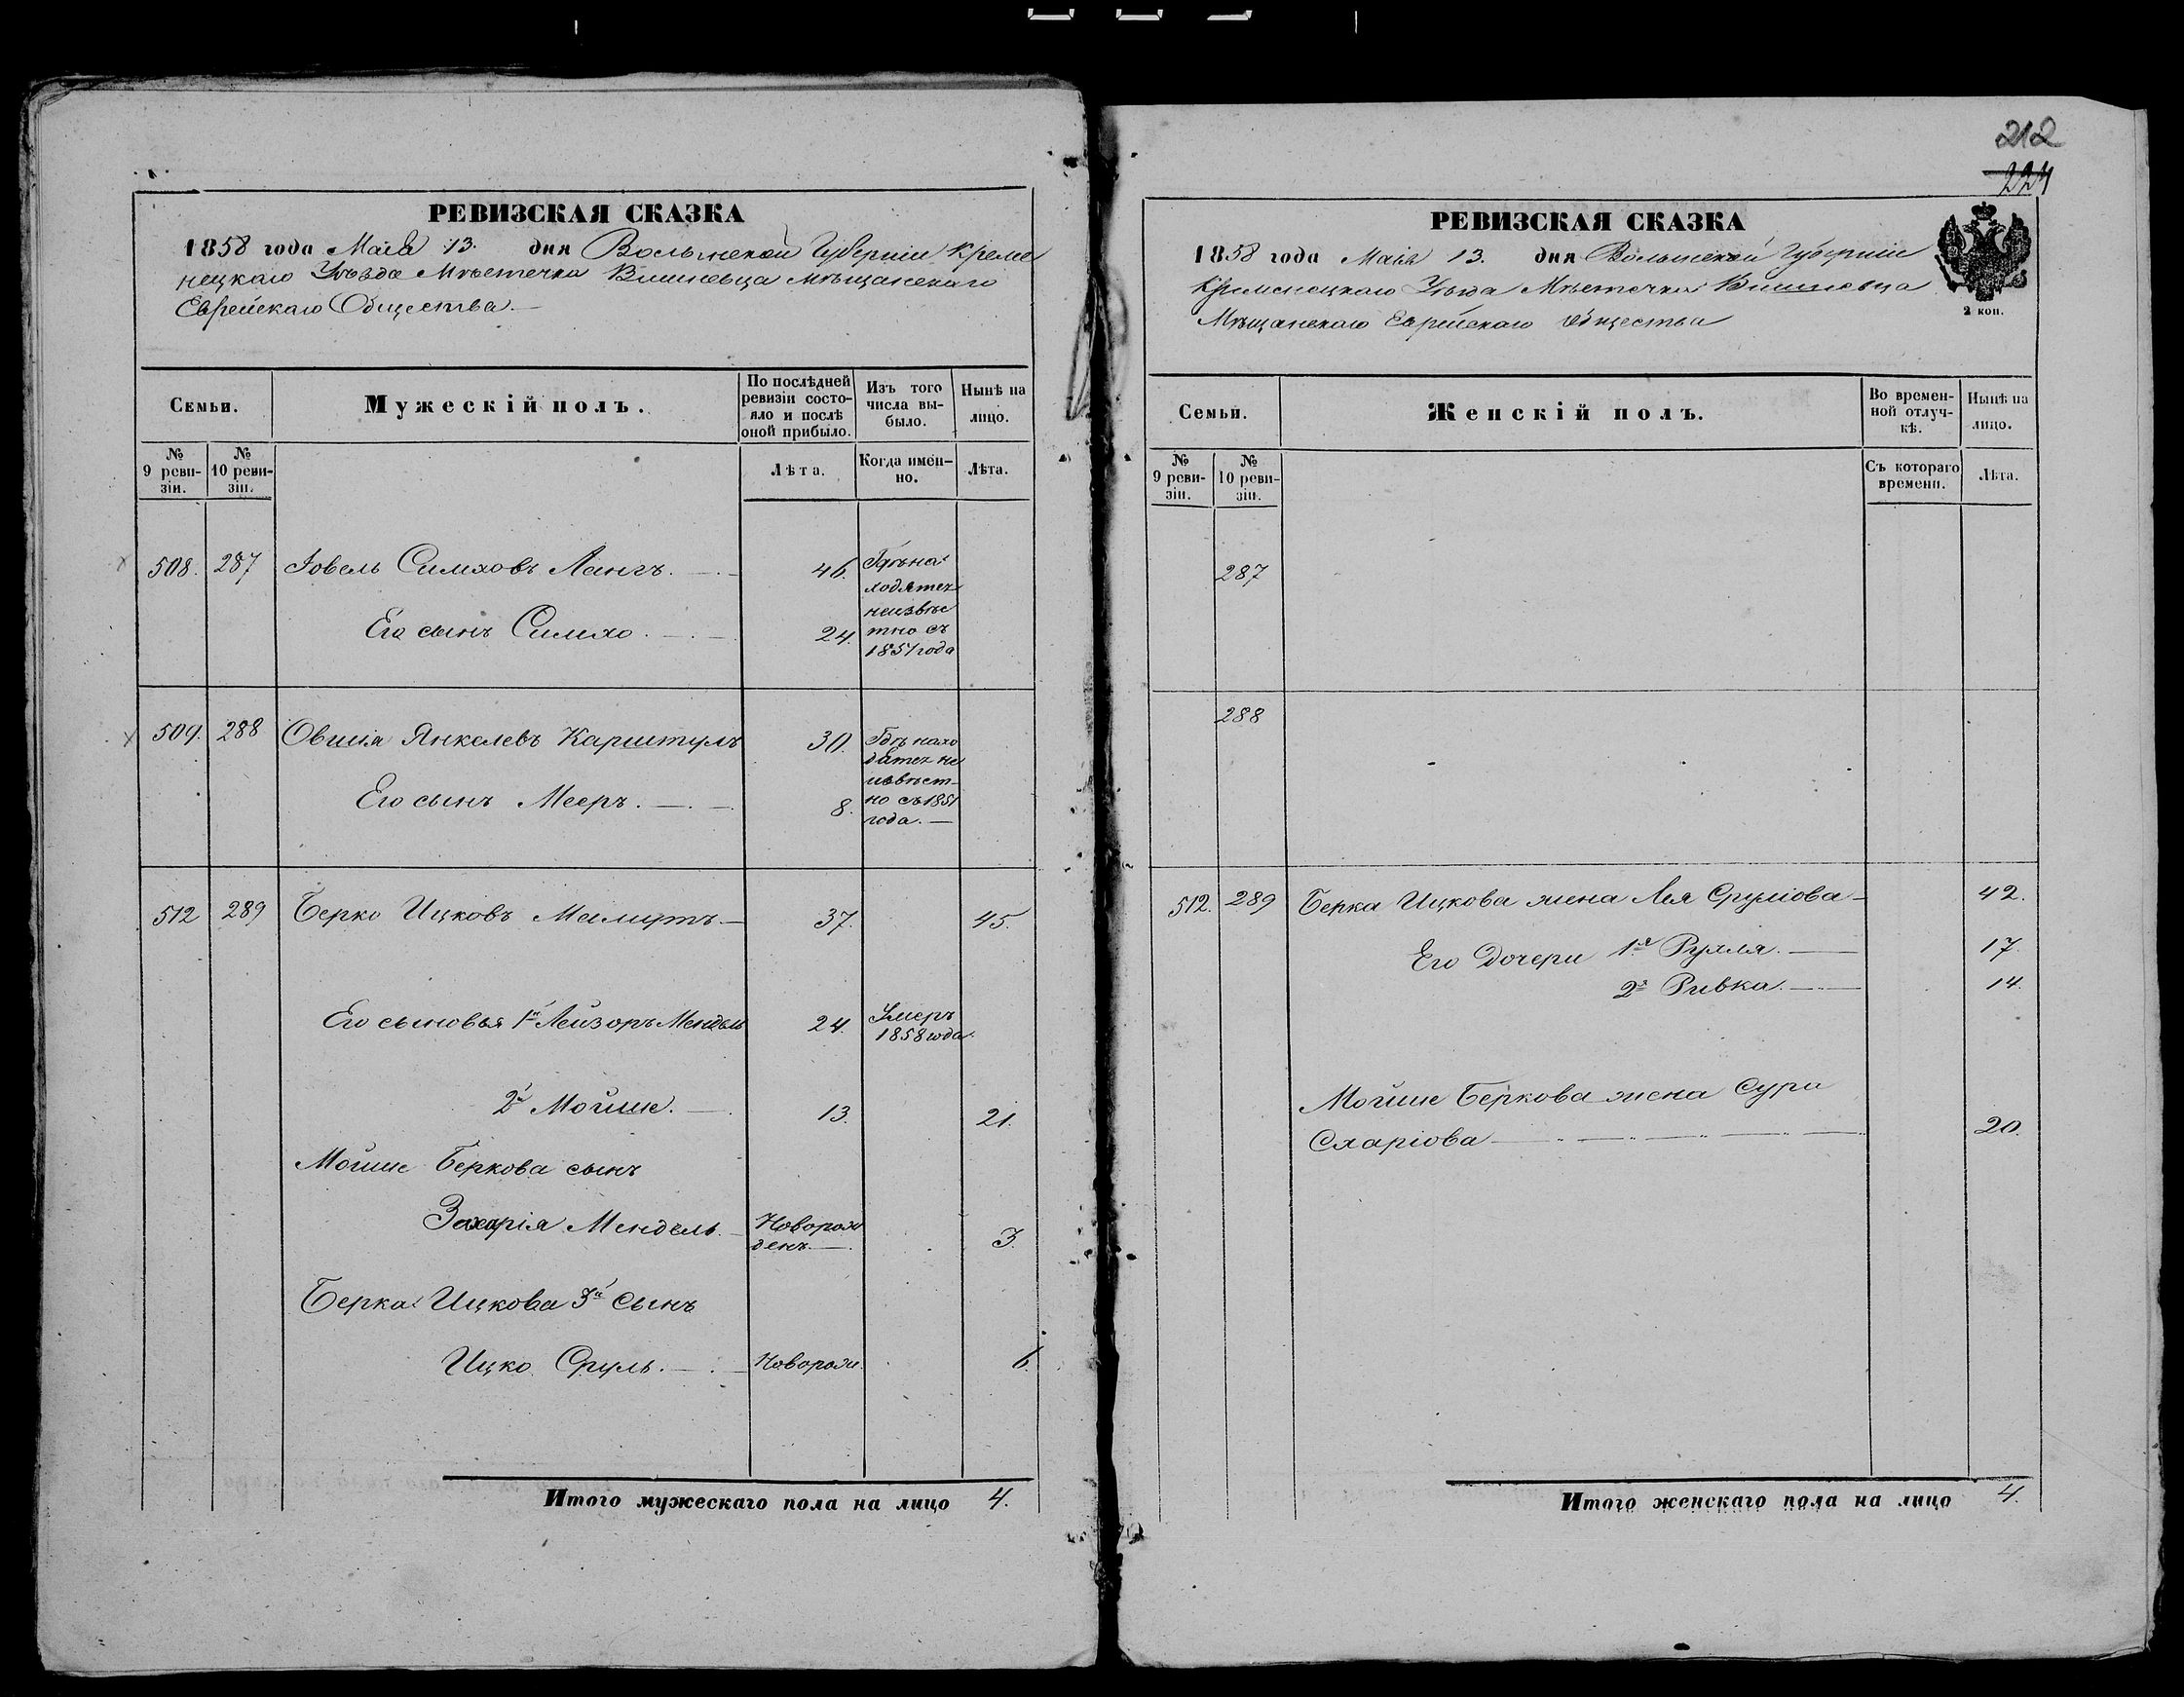 212
224
РЕВИЗСКАЯ СКАЗКА
1858 года Маія 13. дня Волынской Губерніи Креме
нецкаго Уѣзда Мѣстечка Вишневца мѣщанскаго
Еврейскаго Общества.
Семьи.
Мужескій полъ.
По послѣдней
ревизіи состо-
яло и послѣ
оной прибыло.
Изъ того
числа вы-
было.
Нынѣ на
лицо.
№
9 реви-
зіи.
№
10 реви-
зіи.
Лѣта.
Когда имен-
но.
Лѣта.
508. 287 Іовель Симховъ Лангъ. 46. Гдѣ на
ходятся
неизвѣс
Его сынъ Симхо. 24. тно съ
1851 года
509. 288 Овшія Янкелевъ Карштулъ 30. Гдѣ нахо
дятся не
извѣст-
Его сынъ Мееръ. 8. но съ 1851
года.
512 289 Берко Ицковъ 37. 45.
Его сыновья 1й Лейзоръ Мендель 24. Умеръ
1858 года
2й Мойше. 13. 21.
Мойше Беркова сынъ
Захарія Мендель. Новорож
денъ. 3.
Берка Ицкова 3й сынъ
Ицко Сруль. Новорож. 6.
Итого мужескаго пола на лицо 4.
РЕВИЗСКАЯ СКАЗКА
1858 года Маія 13. дня Волынской Губерніи
Кременецкаго Уѣзда Мѣстечка Вишневца
Мѣщанскаго Еврейскаго Общества
2 коп.
Семьи.
Женскій полъ.
Во времен-
ной отлуч-
кѣ.
Нынѣ на
лицо.
№
9 реви-
зіи.
№
10 реви-
зіи.
Съ котораго
времени.
Лѣта.
287
288
512. 289 Берка Ицкова жена Лея Сруліова 42.
Его дочери 1я Рухля. 17.
2я Ривка. 14.
Мойше Беркова жена Сура
Схаріова 20.
Итого женскаго пола на лицо 4.